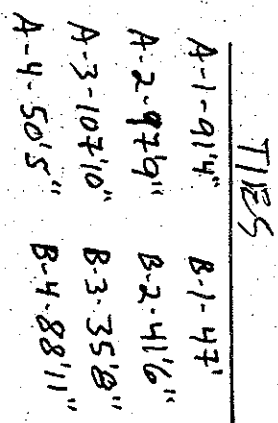 TIES
A-1-91'4" B-1-47'
A-2-97'9" B-2-41'6"
A-3-107'10" B-3-35'8"
A-4-50'5" B-4-88'11"